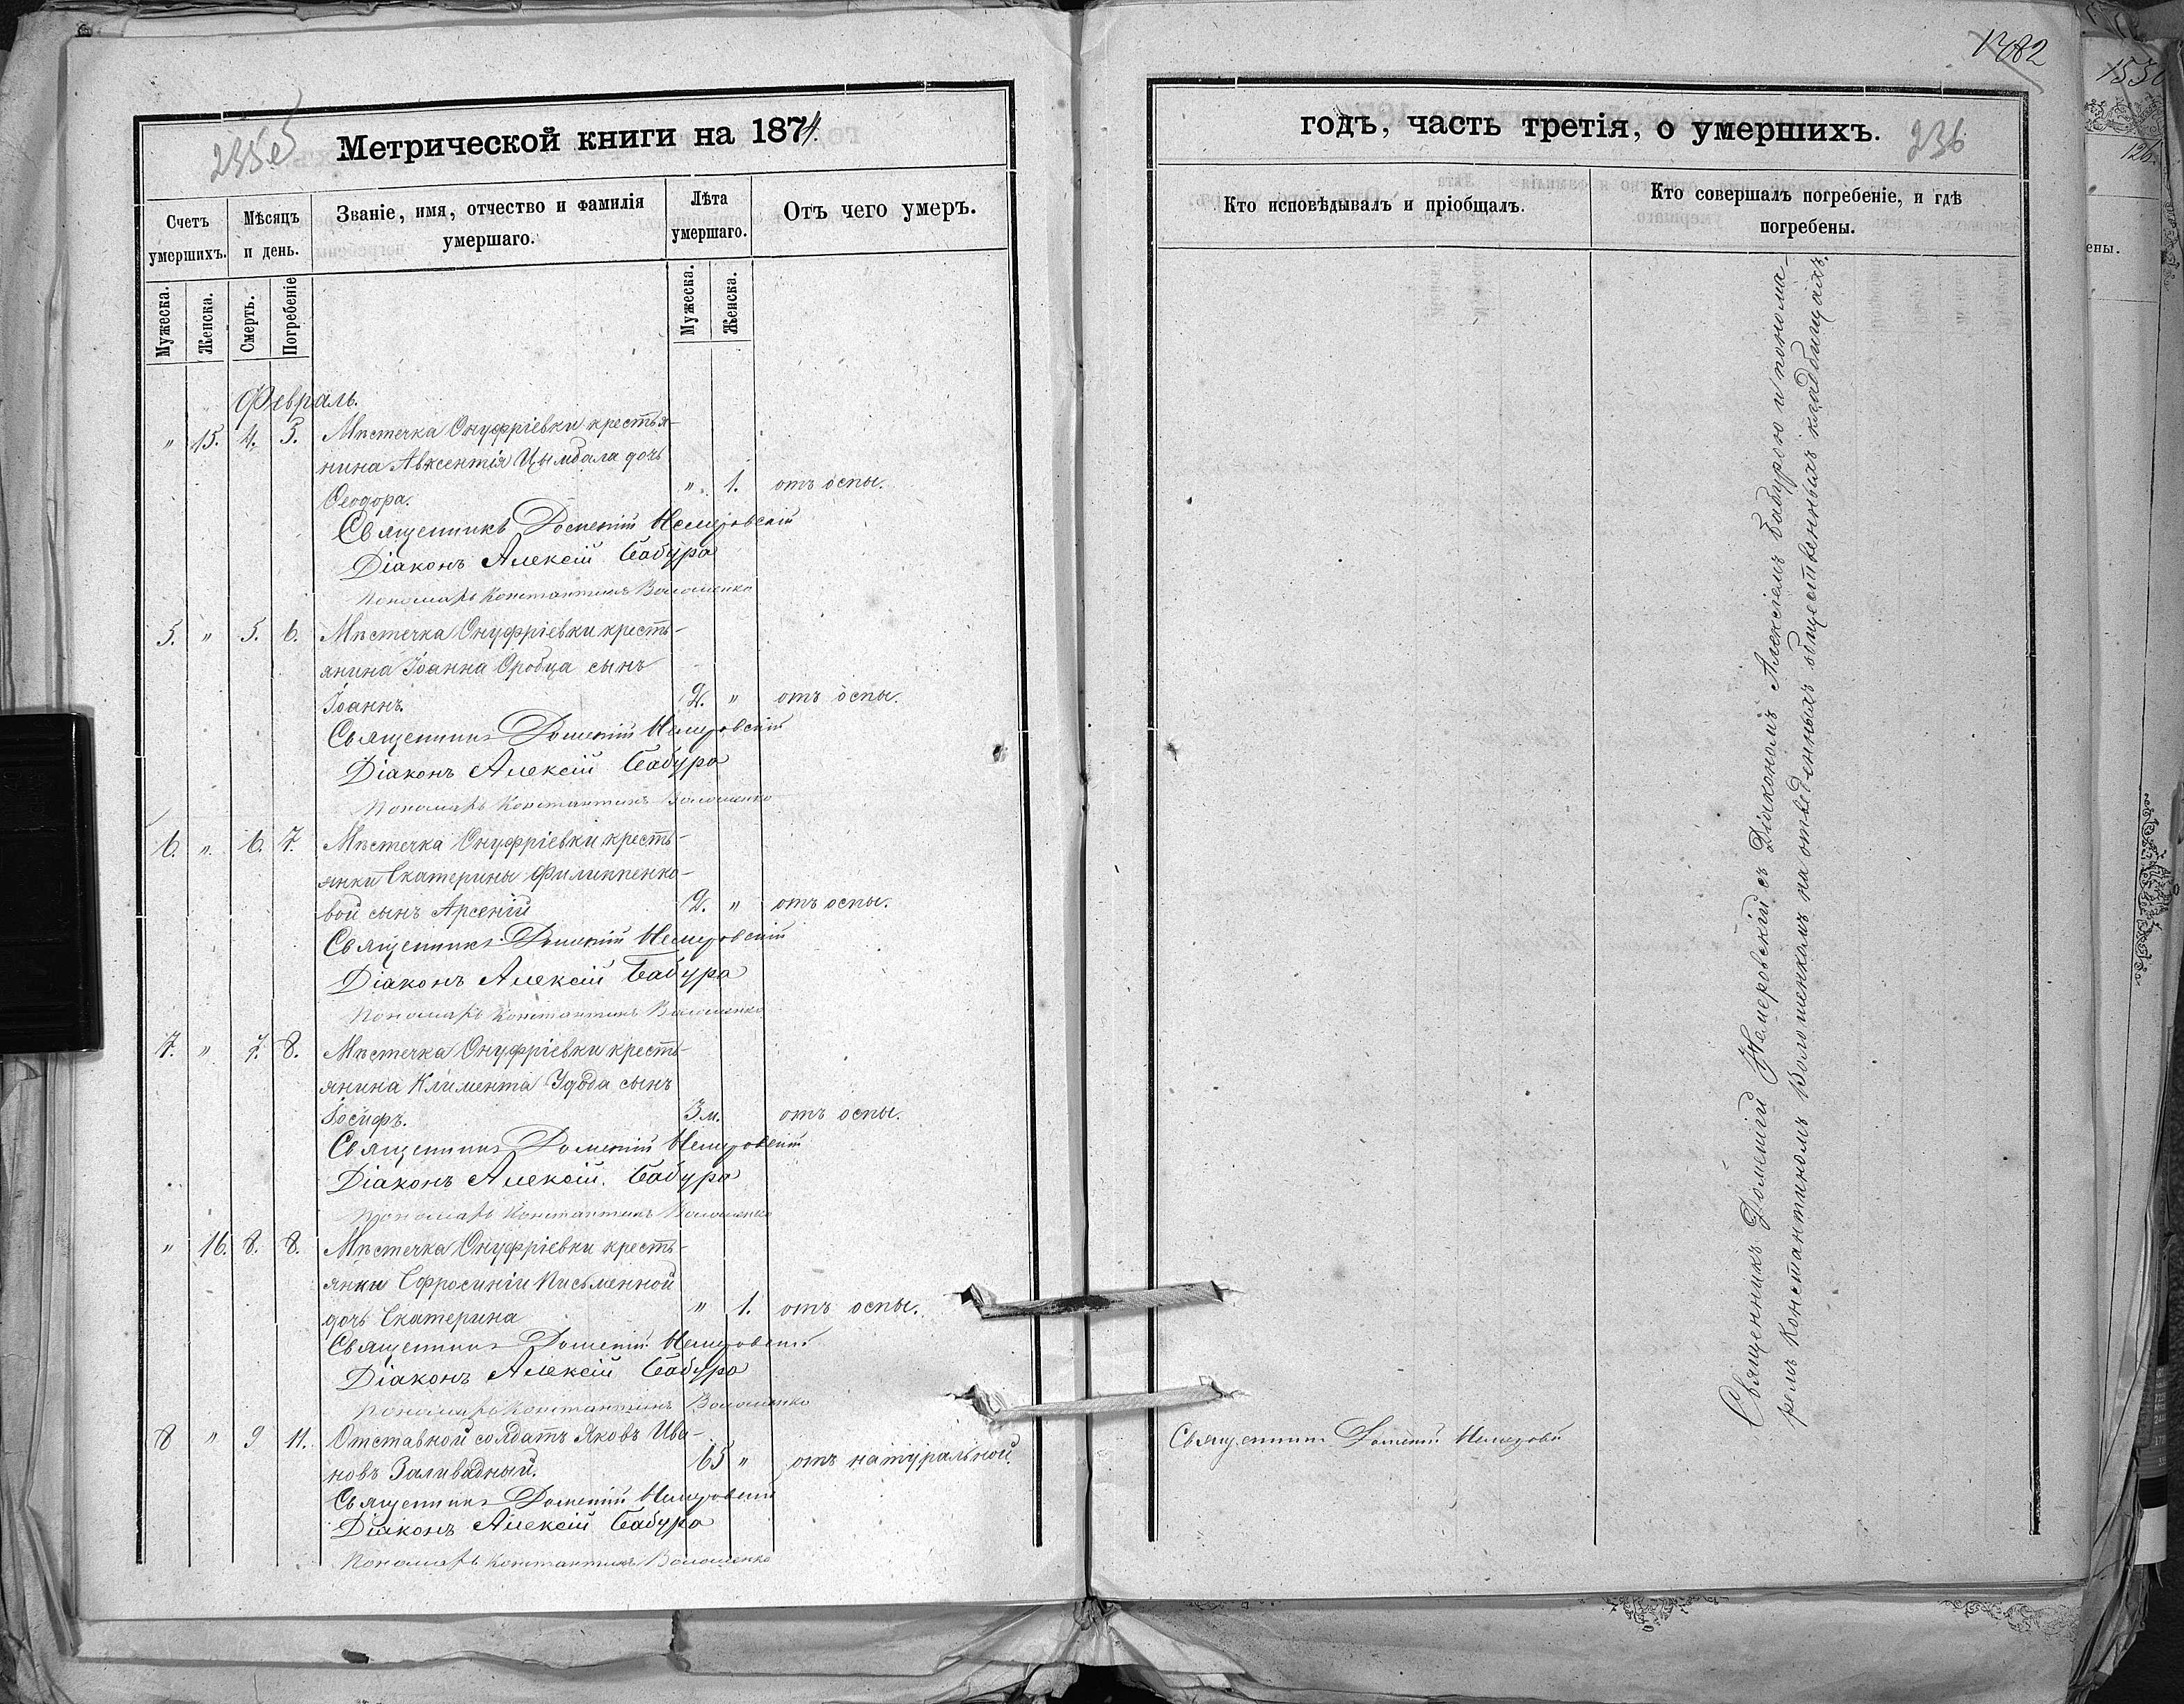 235
Метрической книги на 1874.
Счетъ умершихъ.
Мѣсяцъ и день.
Званіе, имя, отчество и фамилія умершаго.
Лѣта умершаго.
Отъ чего умеръ.
Мужеска.
Женска.
Смерть.
Погребеніе
Мужеска.
Женска.
Февраль.
" 15. 4. 5. Мѣстечка Онуфріевки крестья-
нина Авксентія Цымбала дочь
Ѳеодора. " 1. отъ оспы.
Священникъ Дометій Немеровскій
Діаконъ Алексій Бабура
Пономарь Константинъ Волошенко
5. " 5. 6. Мѣстечка Онуфріевки кресть-
янина Іоанна Оробца сынъ
Іоаннъ. 2. " отъ оспы.
Священникъ Дометій Немеровскій
Діаконъ Алексій Бабура
Пономарь Константинъ Волошенко
6. " 6. 7. Мѣстечка Онуфріевки кресть-
янки Екатерины Филиппенко-
вой сынъ Арсеній 2. " отъ оспы.
Священникъ Дометій Немеровскій
Діаконъ Алексій Бабура
Пономарь Константинъ Волошенко
7. " 7. 8. Мѣстечка Онуфріевки кресть-
янина Климента Удода сынъ
Іосифъ. 3 м. отъ оспы.
Священникъ Дометій Немеровскій
Діаконъ Алексій Бабура
Пономарь Константинъ Волошенко
" 16. 8. 8. Мѣстечка Онуфріевки кресть-
янки Ефросиніи Письменной
дочь Екатерина " 1. отъ оспы.
Священникъ Дометій Немеровскій
Діаконъ Алексій Бабура
Пономарь Константинъ Волошенко
8 " 9 11. Отставной солдатъ Яковъ Ива-
новъ Заливадный. 65 " отъ натуральной.
Священникъ Дометій Немеровскій
Діаконъ Алексій Бабура
Пономарь Константинъ Волошенко
1782
годъ, часть третія, о умершихъ.
236
Кто исповѣдывалъ и пріобщалъ.
Кто совершалъ погребеніе, и гдѣ погребены.
Священникъ Дометій Немеровскій съ Діакономъ Алексіемъ Бабурою и понома-
ремъ Константиномъ Волошенкомъ на отведенныхъ общественныхъ кладбищахъ.
Священникъ Дометій Немеровскій
126.
ены.